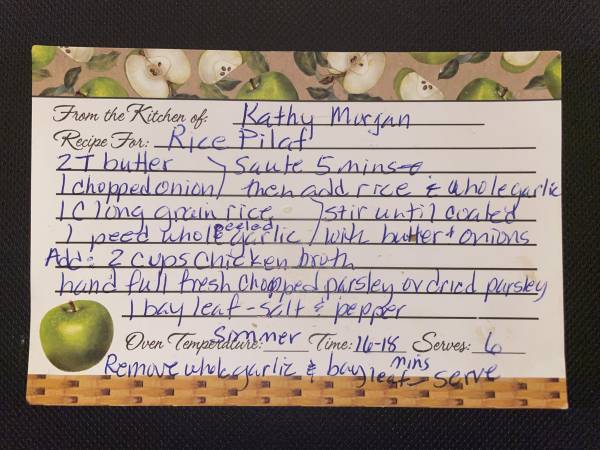 From the Kitchen of: Kathy Morgan
Recipe For: Rice Pilaf
2 T butter ) Saute 5 mins
1 chopped onion / then add rice & whole garlic
1 C long grain rice ) stir until coated
1 peed whole peeled garlic / with butter + onions
Add: 2 cups chicken broth
hand full fresh chopped parsley or dried parsley
1 bay leaf - salt & pepper
Oven Temperature: Simmer Time: 16-18 mins Serves: 6
Remove whole garlic & bay leaf - serve